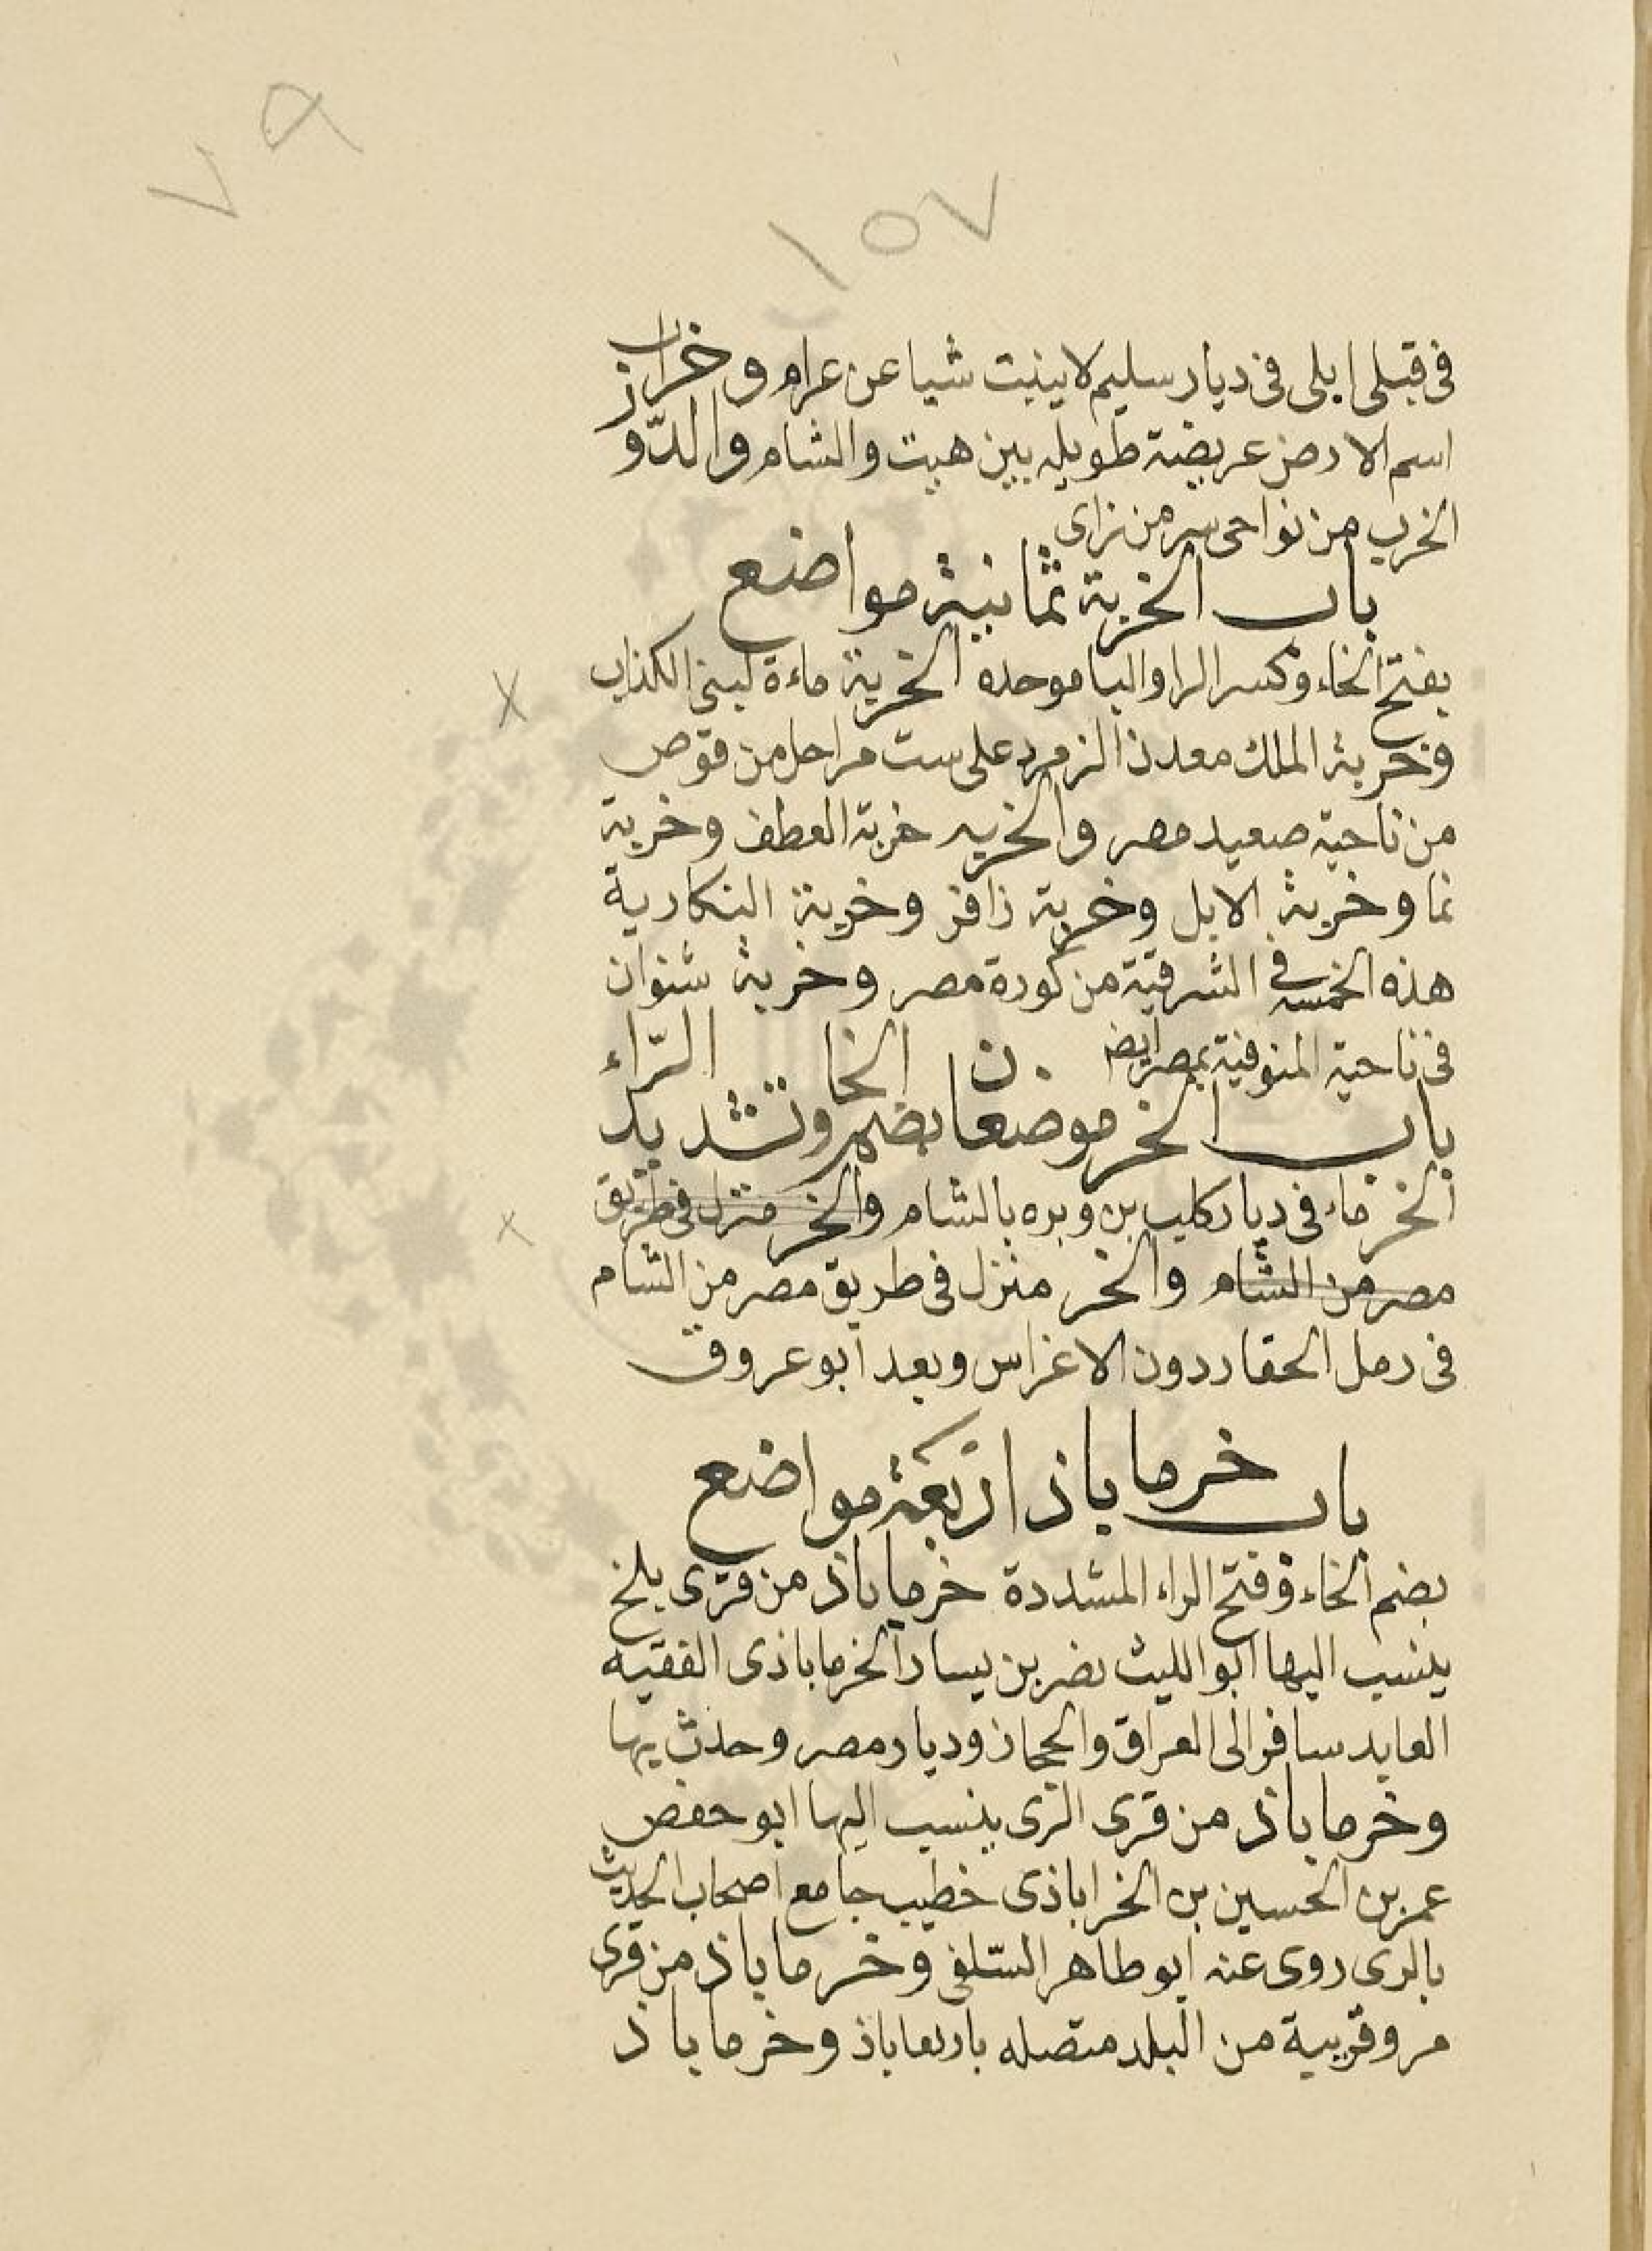 ٧٩
١٥٧
فى قبلى ابلى فى ديار سليم لا ينبت شيا عن عرام وخراب
اسم الارض عريضة طويله بين هيت والشام والدّو
الخرب من نواحى سر من رأى
باب الخربة ثمانية مواضع
بفتح الخاء وكسر الرا والبا موحده الخربة ماءة لبنى الكذاب
وخربة الملك معدن الزمرد على ست مراحل من قوص
من ناحية صعيد مصر والخربه خربة العطف وخربة
نما وخربة الابل وخربة زافر وخربة النكارية
هذه الخمسه فى الشرقية من كورة مصر وخربة شنوان
فى ناحية المنوفية بمصر ايضا
باب الخر موضعان بضم الخا وتشديد الرّاء
الخر ماء فى ديار كليب بن وبره بالشام والخر منزل فى طريق
مصر من الشام والخر منزل فى طريق مصر من الشام
فى رمل الحقار دون الاغراس وبعد ابو عروق
باب خرماباذ اربعة مواضع
بضم الخاء وفتح الراء المشددة خرماباذ من قرى بلخ
ينسب اليها ابو الليث نصر بن يسار الخرماباذى الفقيه
العابد سافر الى العراق والحجاز وديار مصر وحدث بها
وخرماباذ من قرى الرى ينسب اليها ابو حفص
عمر بن الحسين بن الخراباذى خطيب جامع اصحاب الحديث
بالرى روى عنه ابو طاهر السّلفى وخرماباذ من قرى
مرو قريبة من البلد متصله باربعاباذ وخرماباذ